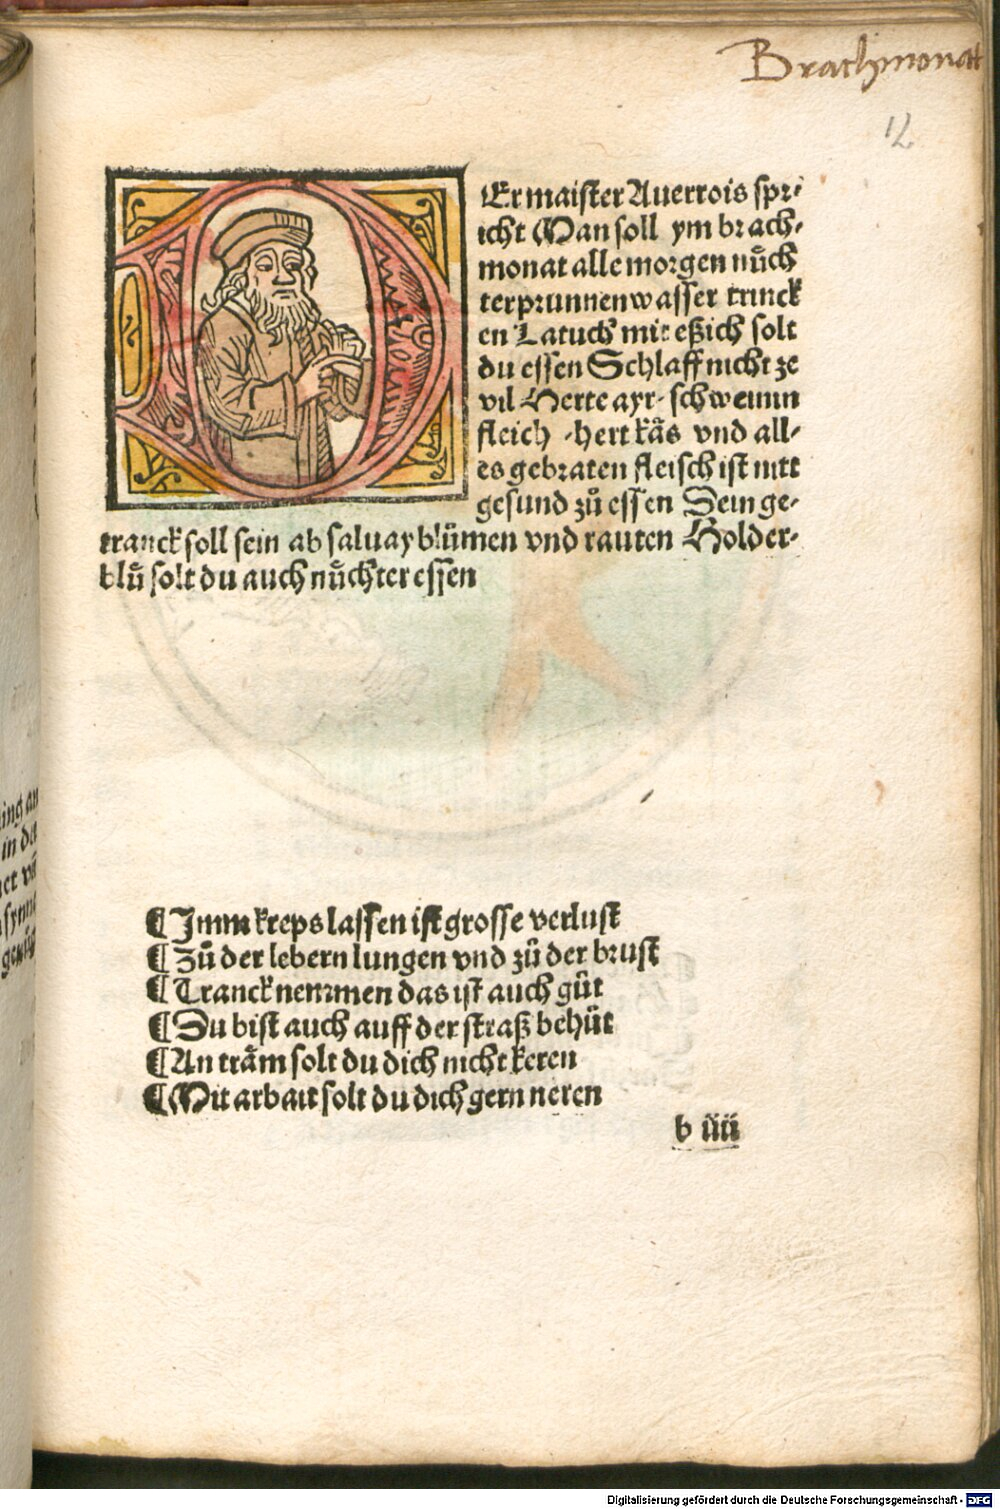 Brachmonat
12
DEr maister Auerrois spr-
icht Man soll ym brach-
monat alle morgen nuͤch
ter prunnen wasser trinck
en Latuch mit eßich solt
du essen Schlaff nicht ze
vil Herte ayr· schweinin
fleich ·hert kaͤs vnd all-
es gebraten fleisch ist nitt
gesund zuͦ essen Sein ge-
tranck soll sein ab saluay bluͤmen vnd rauten Holder-
bluͦ solt du auch nuͤchter essen
¶ Jmm kreps lassen ist grosse verlust
¶ Zuͦ der lebern lungen vnd zuͦ der brust
¶ Tranck nemmen das ist auch guͦt
¶ Du bist auch auff der straß behuͤt
¶ An traͤm solt du dich nicht keren
¶ Mit arbait solt du dich gern neren
b iiii
ing an
in der
Digitalisierung gefördert durch die Deutsche Forschungsgemeinschaft - DFG